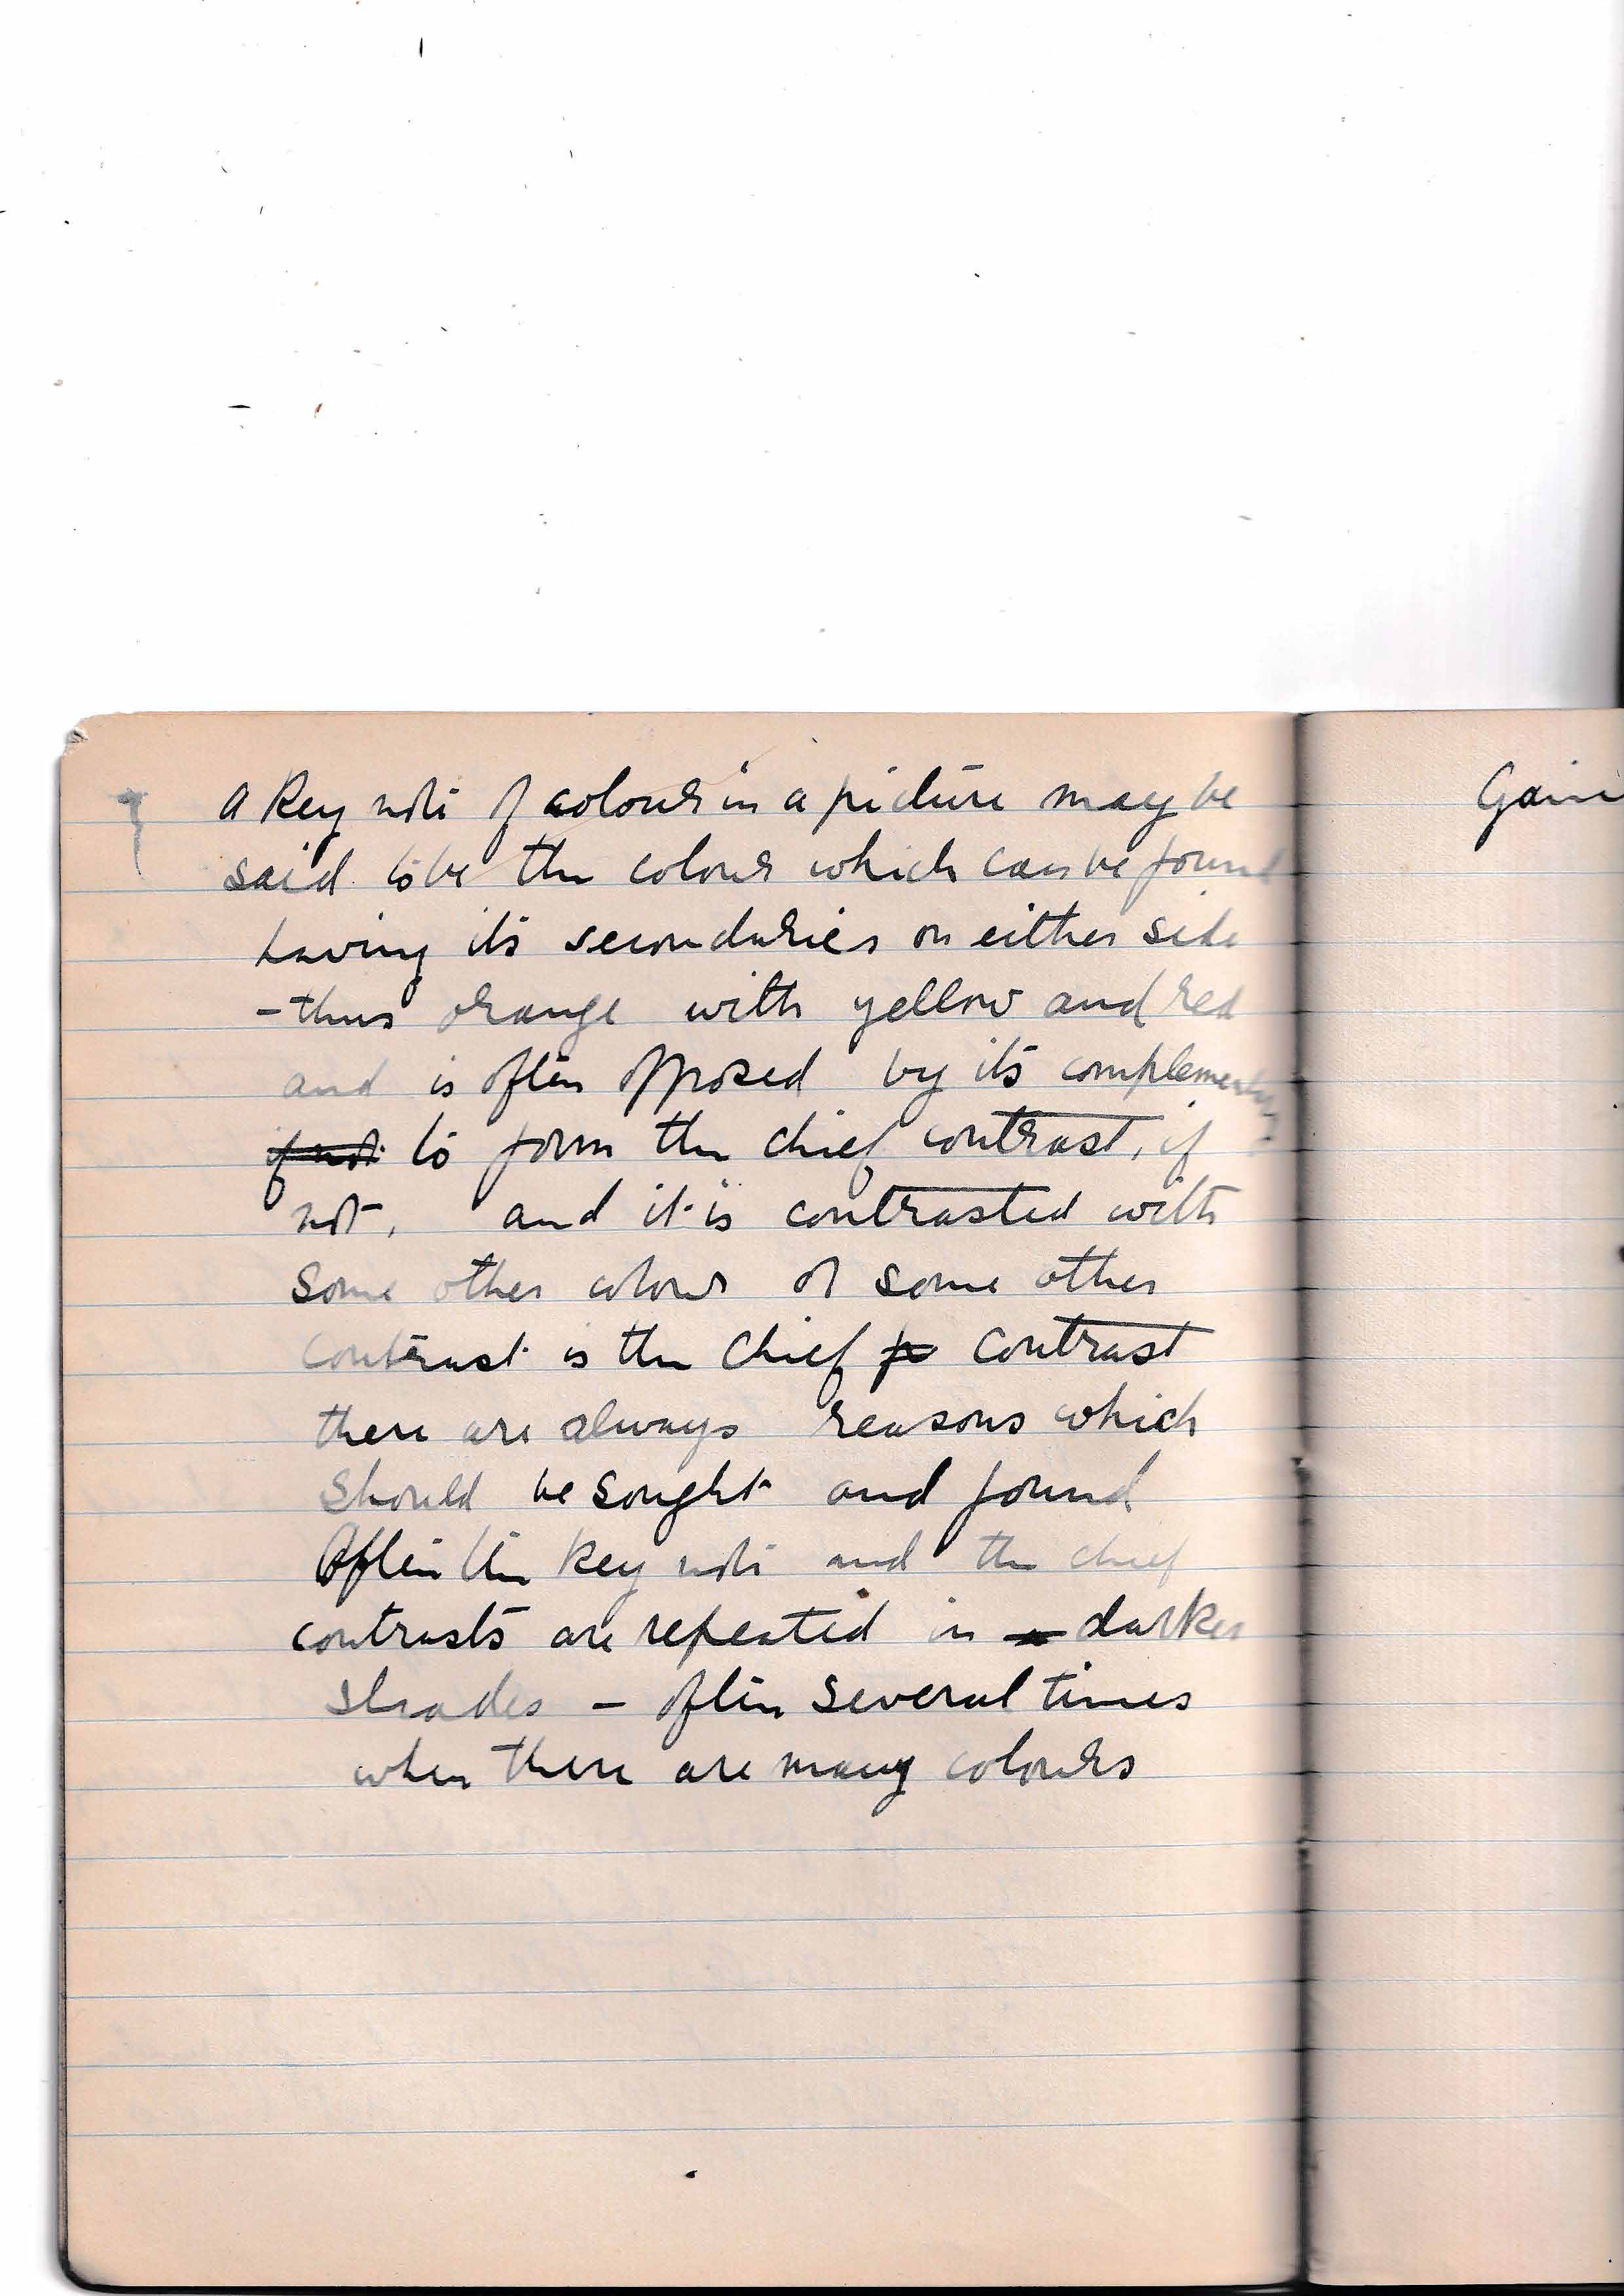 A key note of colour in a picture may be
said to be the colour which can be found
having its secondaries on either side
- thus orange with yellow and red
and is often opposed by its complementary
if not to form the chief contrast, if
not, and it is contrasted with
some other colour or some other
contrast is the chief contrast
there are always reasons which
should be sought and found
Often the key note and the chief
contrasts are repeated in a darker
shades - often several times
when there are many colours
Gain